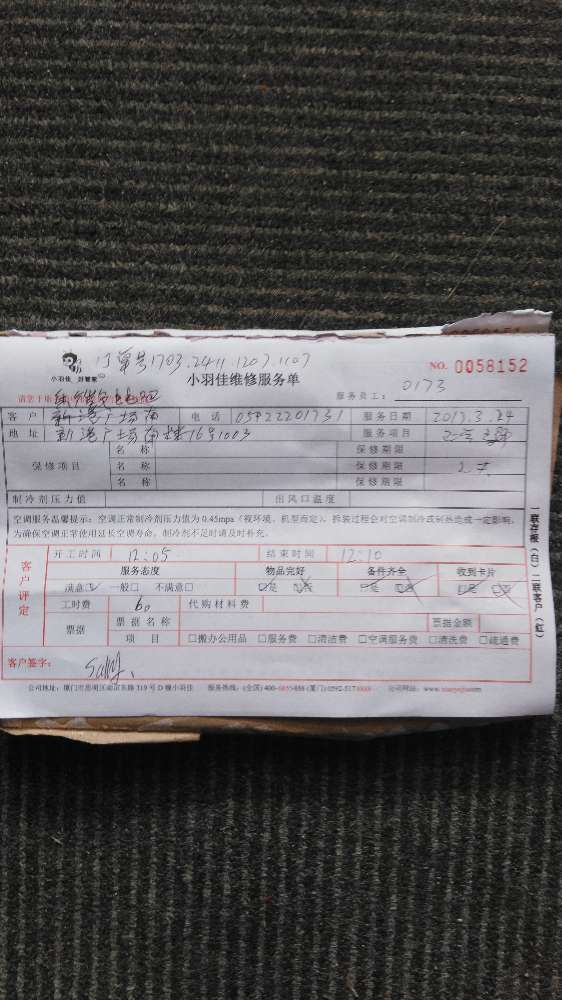 小羽佳 好管家 订单号1703.2411.1207.1107
小羽佳维修服务单 NO. 0058152
服务员工: 0173
客户 新港广场 电话 059222201731 服务日期 2017.3.24
地址 新港广场 16号1003 服务项目
保修项目 名称 保修期限
名称 保修期限
名称 保修期限
制冷剂压力值 出风口温度
空调服务温馨提示:空调正常制冷剂压力值为0.45mpa(视环境、机型而定),拆装过程会对空调制冷或制热造成一定影响,
为确保空调正常使用延长空调寿命,制冷剂不足时请及时补充。
开工时间 12:05 结束时间 12:10
客户评定 服务态度 物品完好 备件齐全 收到卡片
满意☑ 一般□ 不满意□ ☑是 □否 □是 □否 □是 □否
工时费 60 代购材料费
票据 票据名称 票据金额
项目 □搬办公用品 □服务费 □清洁费 □空调服务费 □清洗费 □疏通费
客户签字: Sally.
公司地址:厦门市思明区 319号D幢小羽佳 服务热线:(全国)400- (厦门)0592-517 公司网址:
一联存根(白) 二联客户(红)